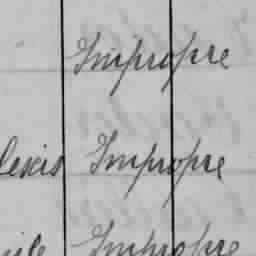 Impropre
lexis Impropre
Impropre